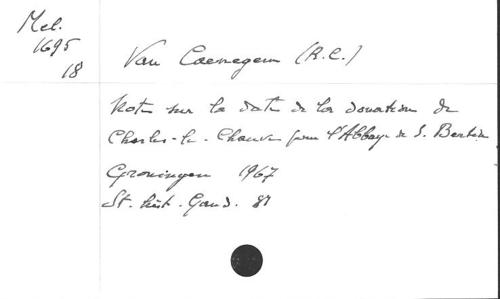 Mel.
1695
18
Van Caenegem (R.C.)
Note sur la date de la donation de
Charles-le-Chauve pour l'Abbaye de S. Bertin
Groningen 1967
St. hist. Gand. 81